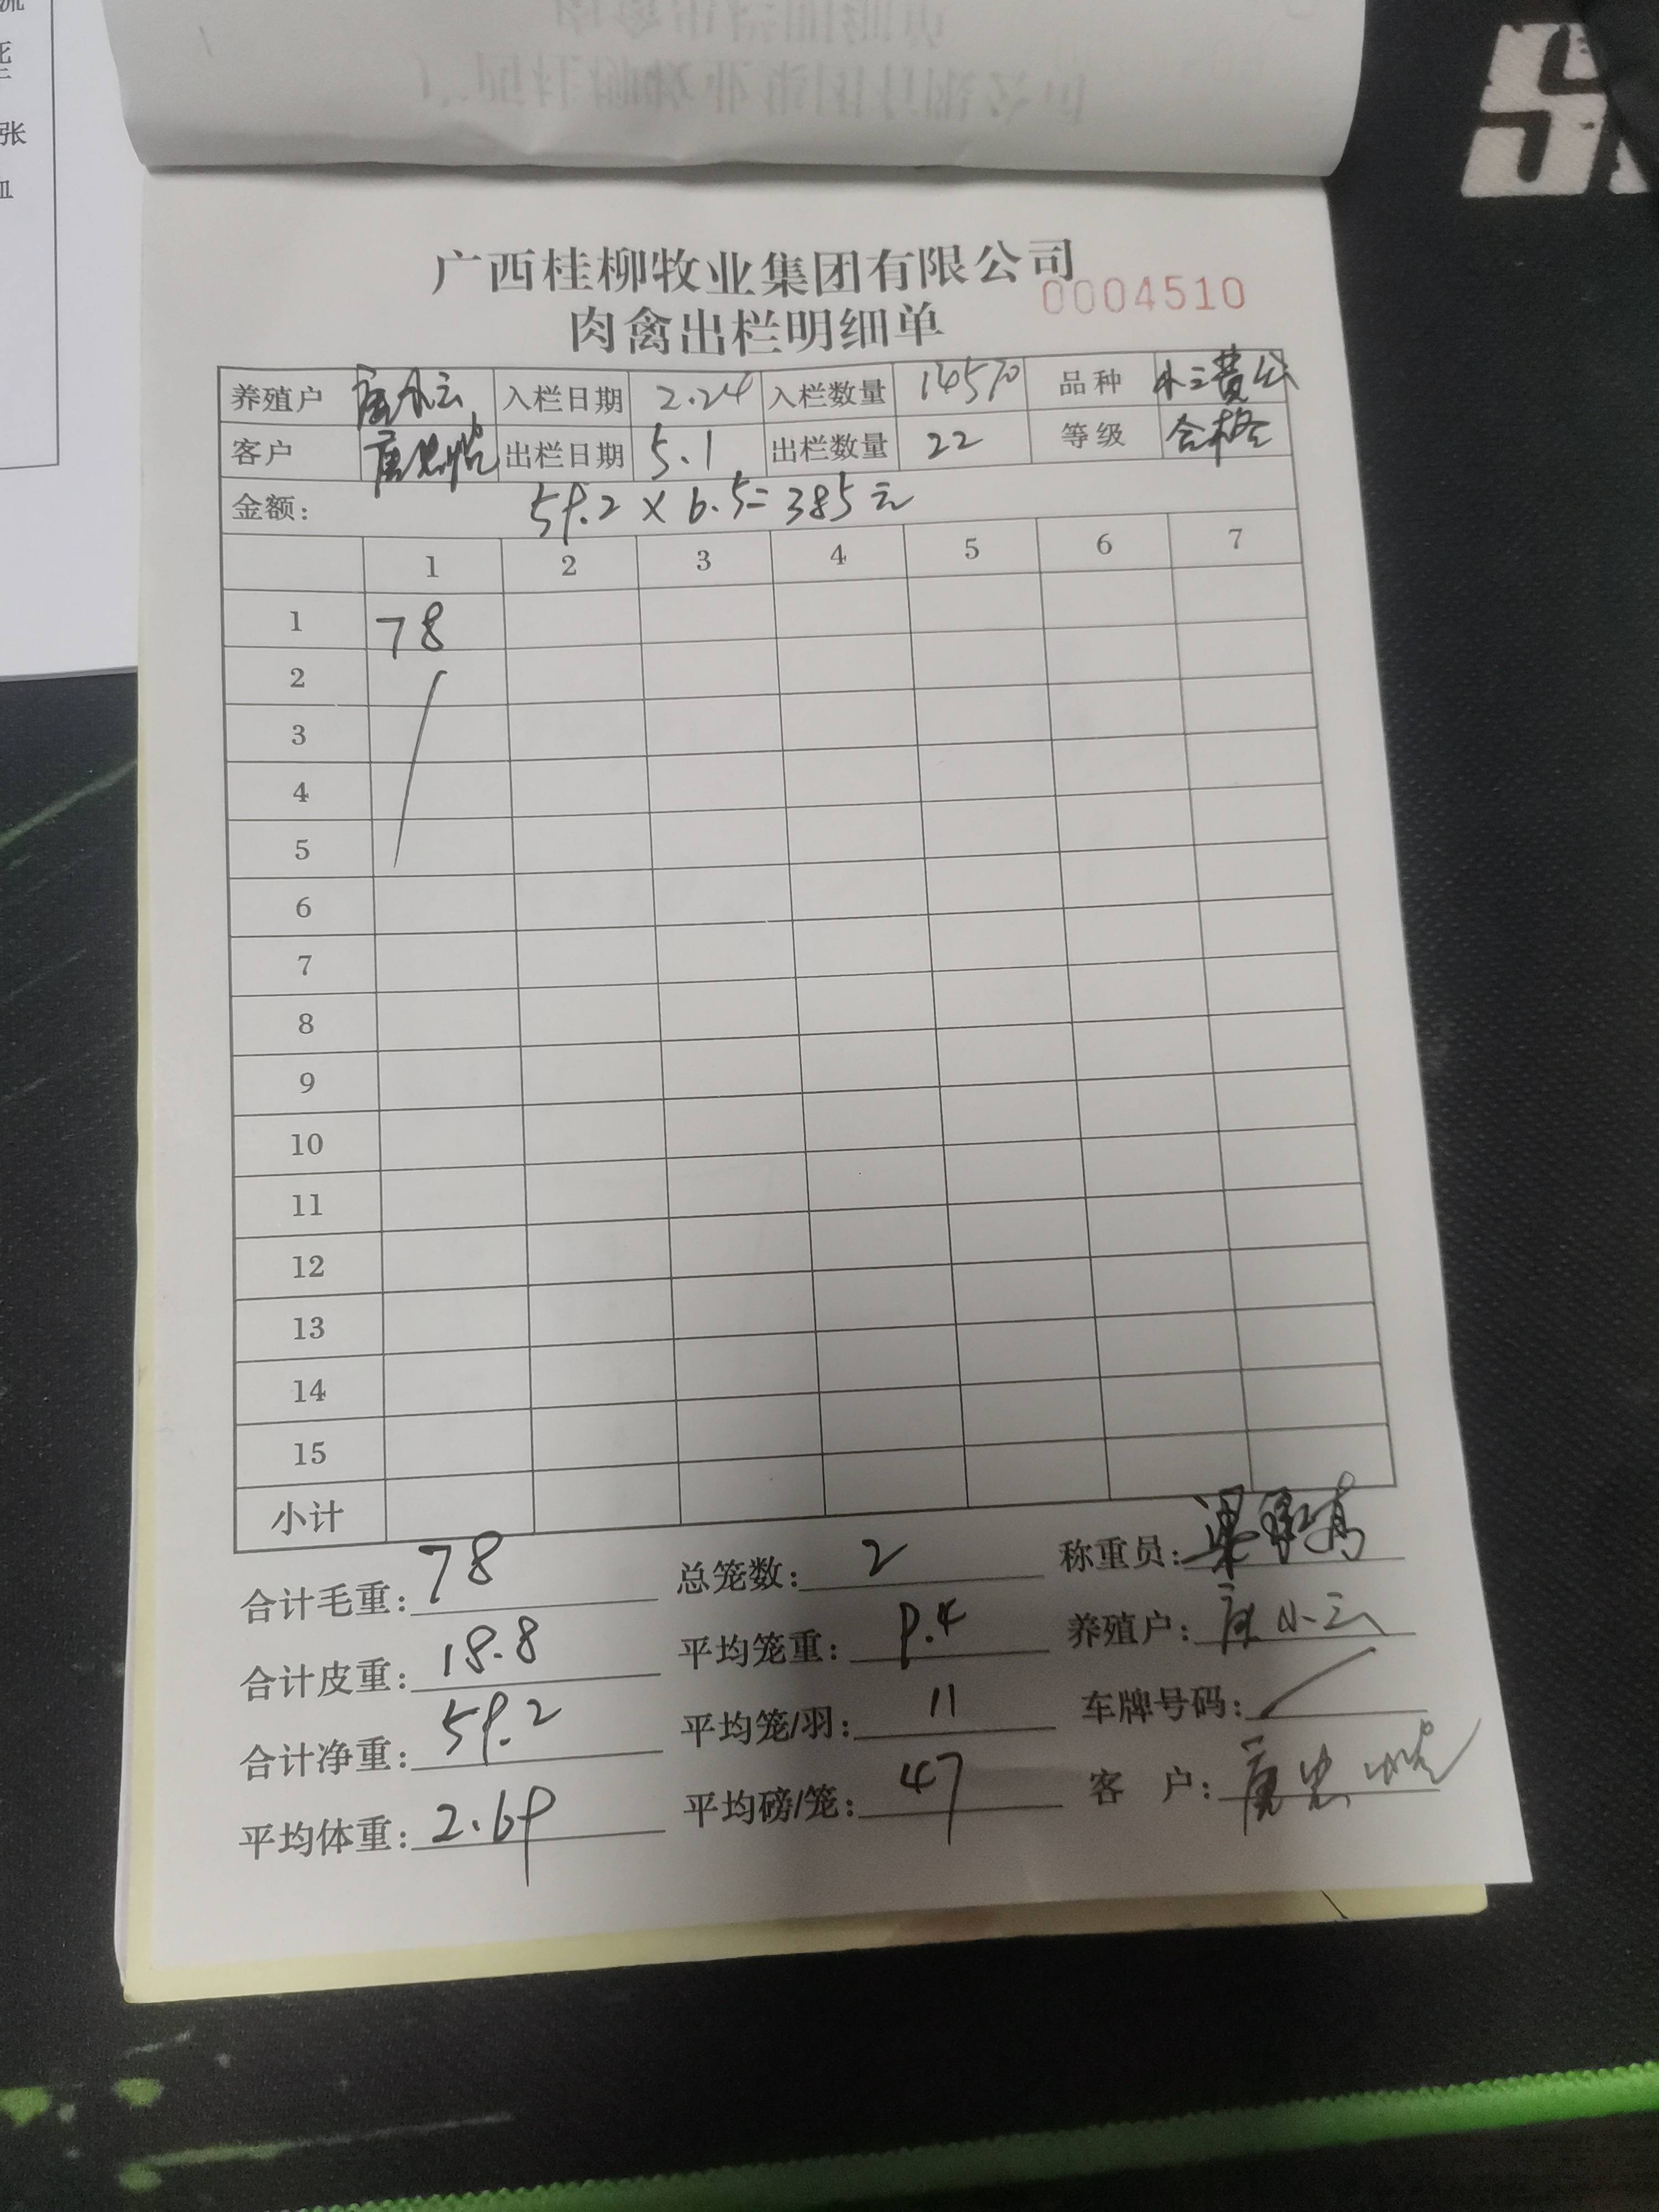 张
广西桂柳牧业集团有限公司
0004510
肉禽出栏明细单
养殖户 唐小云 入栏日期 2.24 入栏数量 14570 品种 小三黄公
客户 唐 出栏日期 5.1 出栏数量 22 等级 合格
金额: 59.2 x 6.5= 385元
1 2 3 4 5 6 7
1 78
2
3
4
5
6
7
8
9
10
11
12
13
14
15
小计
合计毛重: 78 总笼数: 2 称重员: 梁
合计皮重: 18.8 平均笼重: 9.4 养殖户: 唐小云
合计净重: 59.2 平均笼/羽: 11 车牌号码:
平均体重: 2.69 平均磅/笼: 47 客 户: 唐